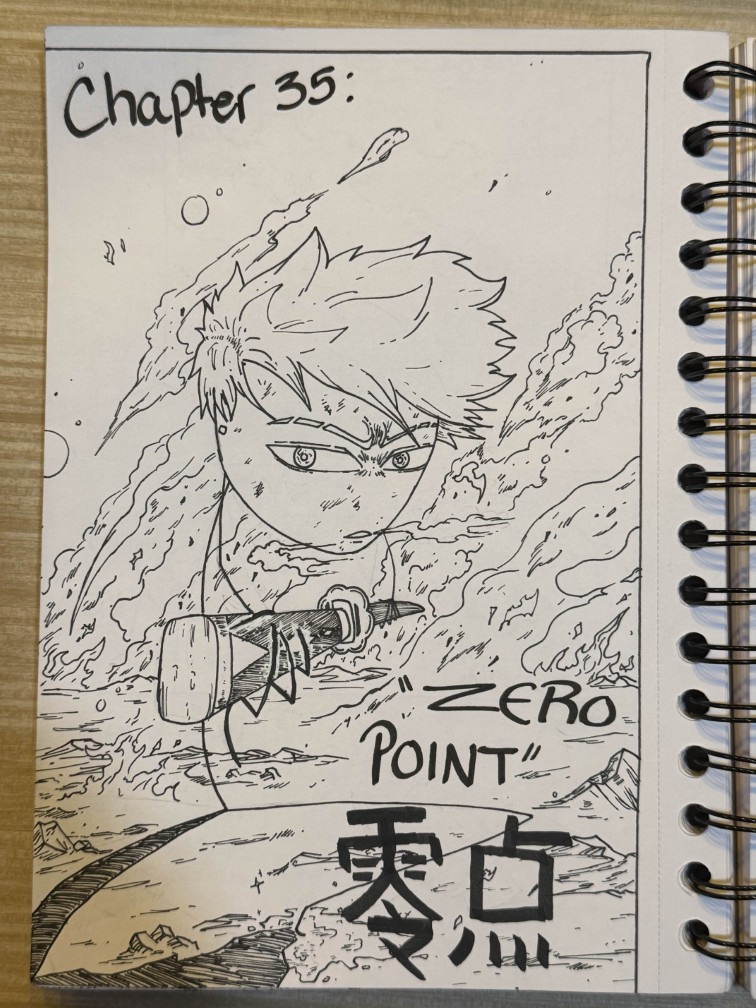 Chapter 35:
"ZERO
POINT"
零点